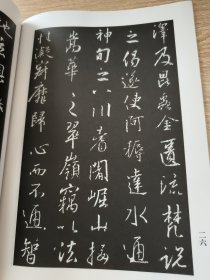 澤及昆蟲金匱流梵說
之偈遂使阿耨達水通
神甸之八川耆闍崛山接
嵩華之翠嶺竊以法
性凝寂靡歸心而不通智